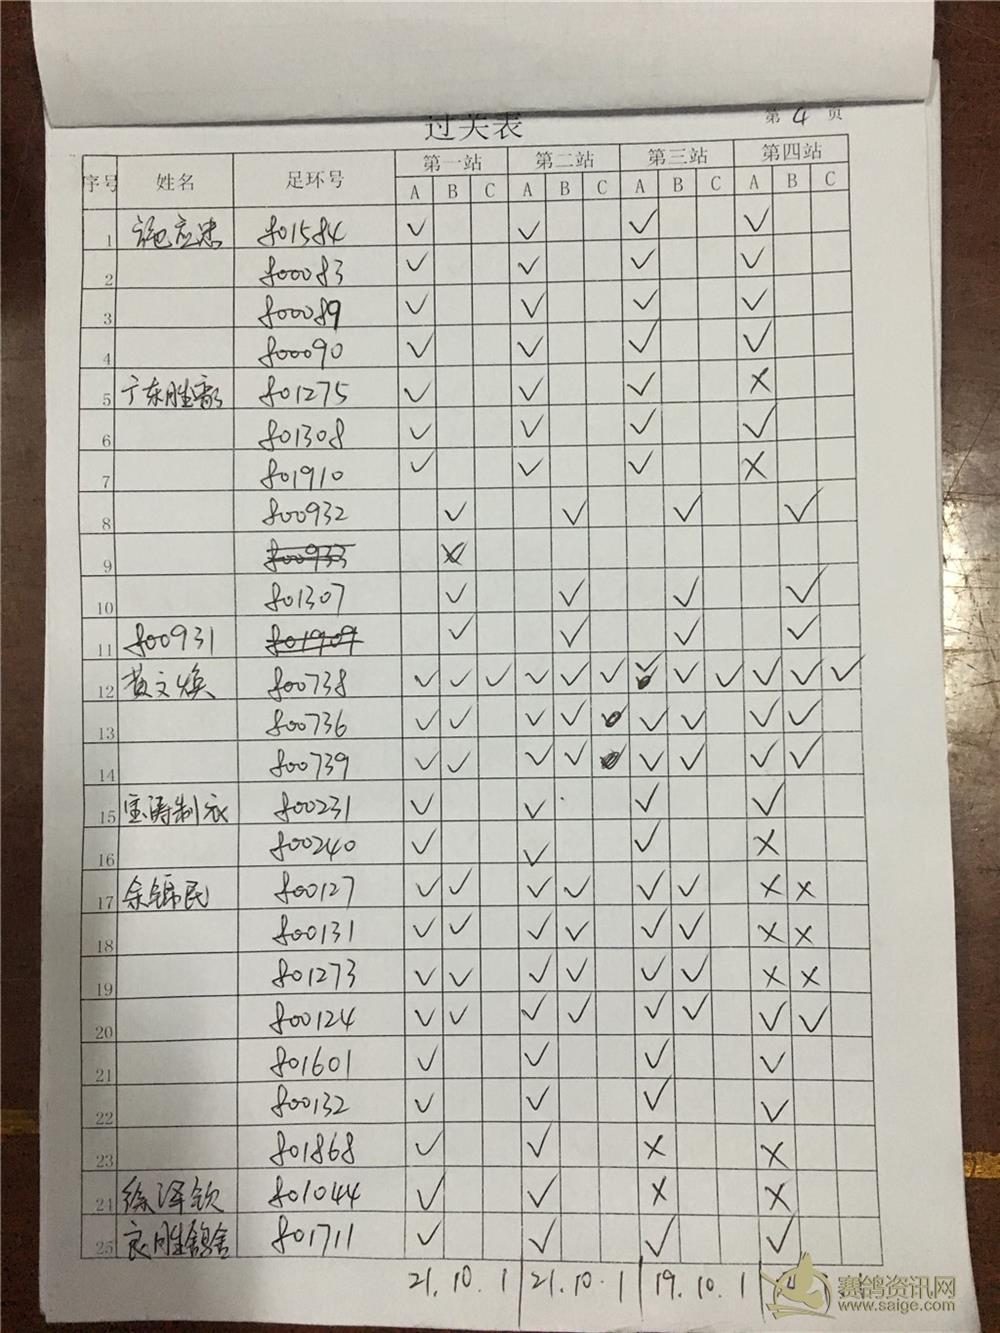 过关表 第4页
序号 姓名 足环号 第一站 第二站 第三站 第四站
A B C A B C A B C A B C
1 施应忠 801584 ✓ ✓ ✓ ✓
2 800083 ✓ ✓ ✓ ✓
3 800089 ✓ ✓ ✓ ✓
4 800090 ✓ ✓ ✓ ✓
5 广东胜 801275 ✓ ✓ ✓ ×
6 801308 ✓ ✓ ✓ ✓
7 801910 ✓ ✓ ✓ ×
8 800932 ✓ ✓ ✓ ✓
9 800933 ×
10 801307 ✓ ✓ ✓ ✓
11 800931 801909 ✓ ✓ ✓ ✓
12 黄文焕 800738 ✓ ✓ ✓ ✓ ✓ ✓ ✓ ✓ ✓ ✓ ✓ ✓
13 800736 ✓ ✓ ✓ ✓ ✓ ✓ ✓ ✓
14 800739 ✓ ✓ ✓ ✓ ✓ ✓ ✓ ✓
15 宝涛制衣 800231 ✓ ✓ ✓ ✓
16 800240 ✓ ✓ ✓ ×
17 余锦民 800127 ✓ ✓ ✓ ✓ ✓ ✓ × ×
18 800131 ✓ ✓ ✓ ✓ ✓ ✓ × ×
19 801273 ✓ ✓ ✓ ✓ ✓ ✓ × ×
20 800124 ✓ ✓ ✓ ✓ ✓ ✓ ✓ ✓
21 801601 ✓ ✓ ✓ ✓
22 800132 ✓ ✓ ✓ ✓
23 801868 ✓ ✓ × ×
24 徐泽钦 801044 ✓ ✓ × ×
25 良胜鸽舍 801711 ✓ ✓ ✓ ✓
21.10.1 21.10.1 19.10.1
赛鸽资讯网
www.saige.com